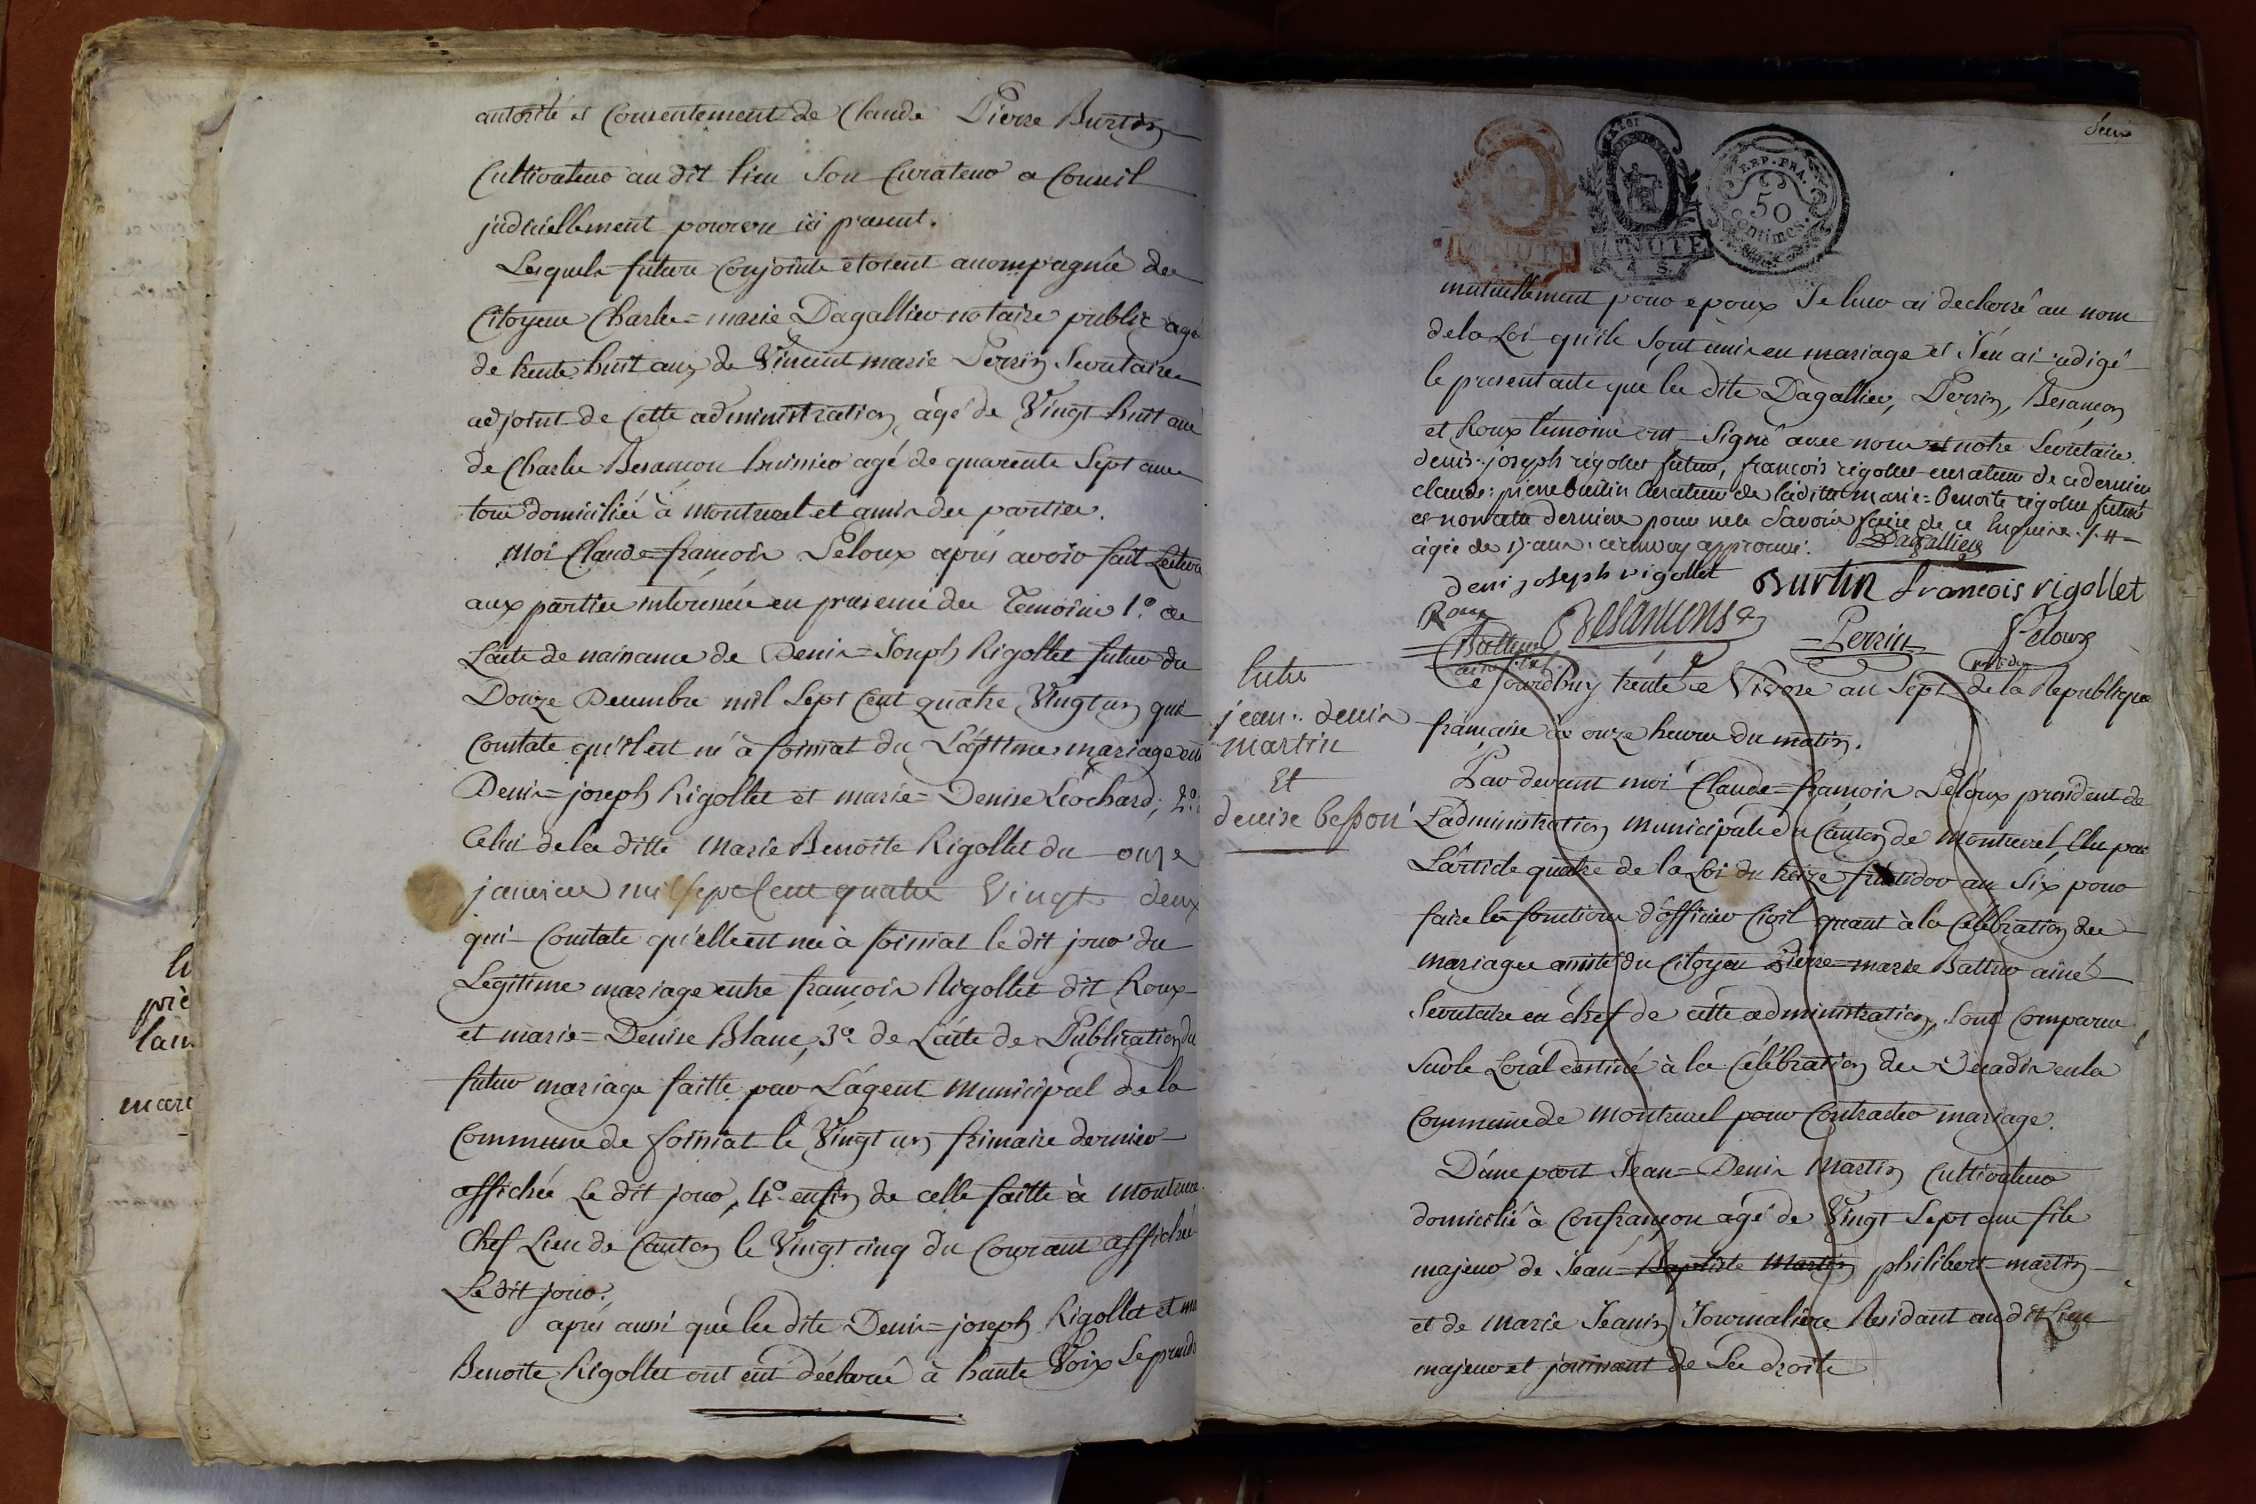 autorité et Consentement de Claude Pierre Burtin
Cultivateur au dit lieu Son Curateur a Conseil
judiciellement pourvu ici present.
Lesquels futurs Conjoints étoient accompagnés des
Citoyens Charles=marie Dagallier notaire public agé
de trente huit ans, de Vincent marie Perrin Secretaire
adjoint de Cette administration, agé de Vingt huit ans
de Charles Besançon huissier agé de quarente Sept ans
tous domiciliés à Montrevel et amis des parties.
Moi Claude=françois Peloux après avoir fait Lecture
aux parties intéressées en presence des Temoins 1.º de
L'acte de naissance de Denis=Joseph Rigollet futur du
Douze Decembre mil Sept Cent quatre Vingt un qui
Constate qu'il est né à foissiat du Légitime mariage entre
Denis=joseph Rigollet et marie=Denise Léochard; 2.º
Celui de la ditte Marie Benoite Rigollet du onze
janvier mil sept Cent quatre Vingt deux
qui Constate qu'elle est née à foissiat le dit jour du
Legitime mariage entre françois Rigollet dit Roux
et marie=Denise Blanc, 3.º de L'acte de Publication du
futur mariage faitte par L'agent Municipal de la
Commune de foissiat le Vingt un frimaire dernier
affichée Le dit jour, 4.º enfin de celle faitte à Montrevel
Chef Lieu de Canton le Vingt cinq du Courant affichée
Le dit jour.
après aussi que les dits Denis=joseph Rigollet et ma
Benoite Rigollet ont eut déclaré à haute Voix Se prendre
MINUTE
MINUTE
REP. FRA.
50
Centimes.
mutuellement pour epoux Je leur ai declaré au nom
de la Loi qu'ils Sont unis en mariage et J'en ai redigé
le present acte que les dits Dagallier, Perrin, Besançon
et Roux temoins ont Signé avec nous et notre Secretaire.
denis-joseph rigollet futur, françois rigollet curateur de ce dernier
claude-pierre burtin Curateur de ladite marie=benoite rigollet future
et non cette dernière pour ne le Savoir faire de ce Enquise.
agée de 17 ans. ce renvoy approuvé. Dagallier
deni joseph rigollet Burtin francois rigollet
Roux Besançons Perrin Peloux
Battur
Entre
jean=denis
martin
Et
denise besson
Ce Jourdhuy trente Nivose an Sept de la Republique
française à onze heures du matin.
Par devant moi Claude=françois Peloux president de
L'administration Municipale du Canton de Montrevel Elu par
L'article quatre de la Loi du treize fructidor an Six pour
faire les fonctions d'officier Civil quant à la Célébration des
mariages assisté du Citoyen Pierre=marie Battur ainé
Secretaire en chef de cette administration, Sont Comparus
Sur le Local destiné à la Célébration des Decadis en la
Commune de Montrevel pour Contracter mariage.
D'une part Jean=Denis Martin Cultivateur
domicilié à Confrançon agé de Vingt Sept ans fils
majeur de Jean=Baptiste Martin philibert martin
et de Marie Jeanin Journalière Residant au dit Lieu
majeur et jouissant de Ses droits